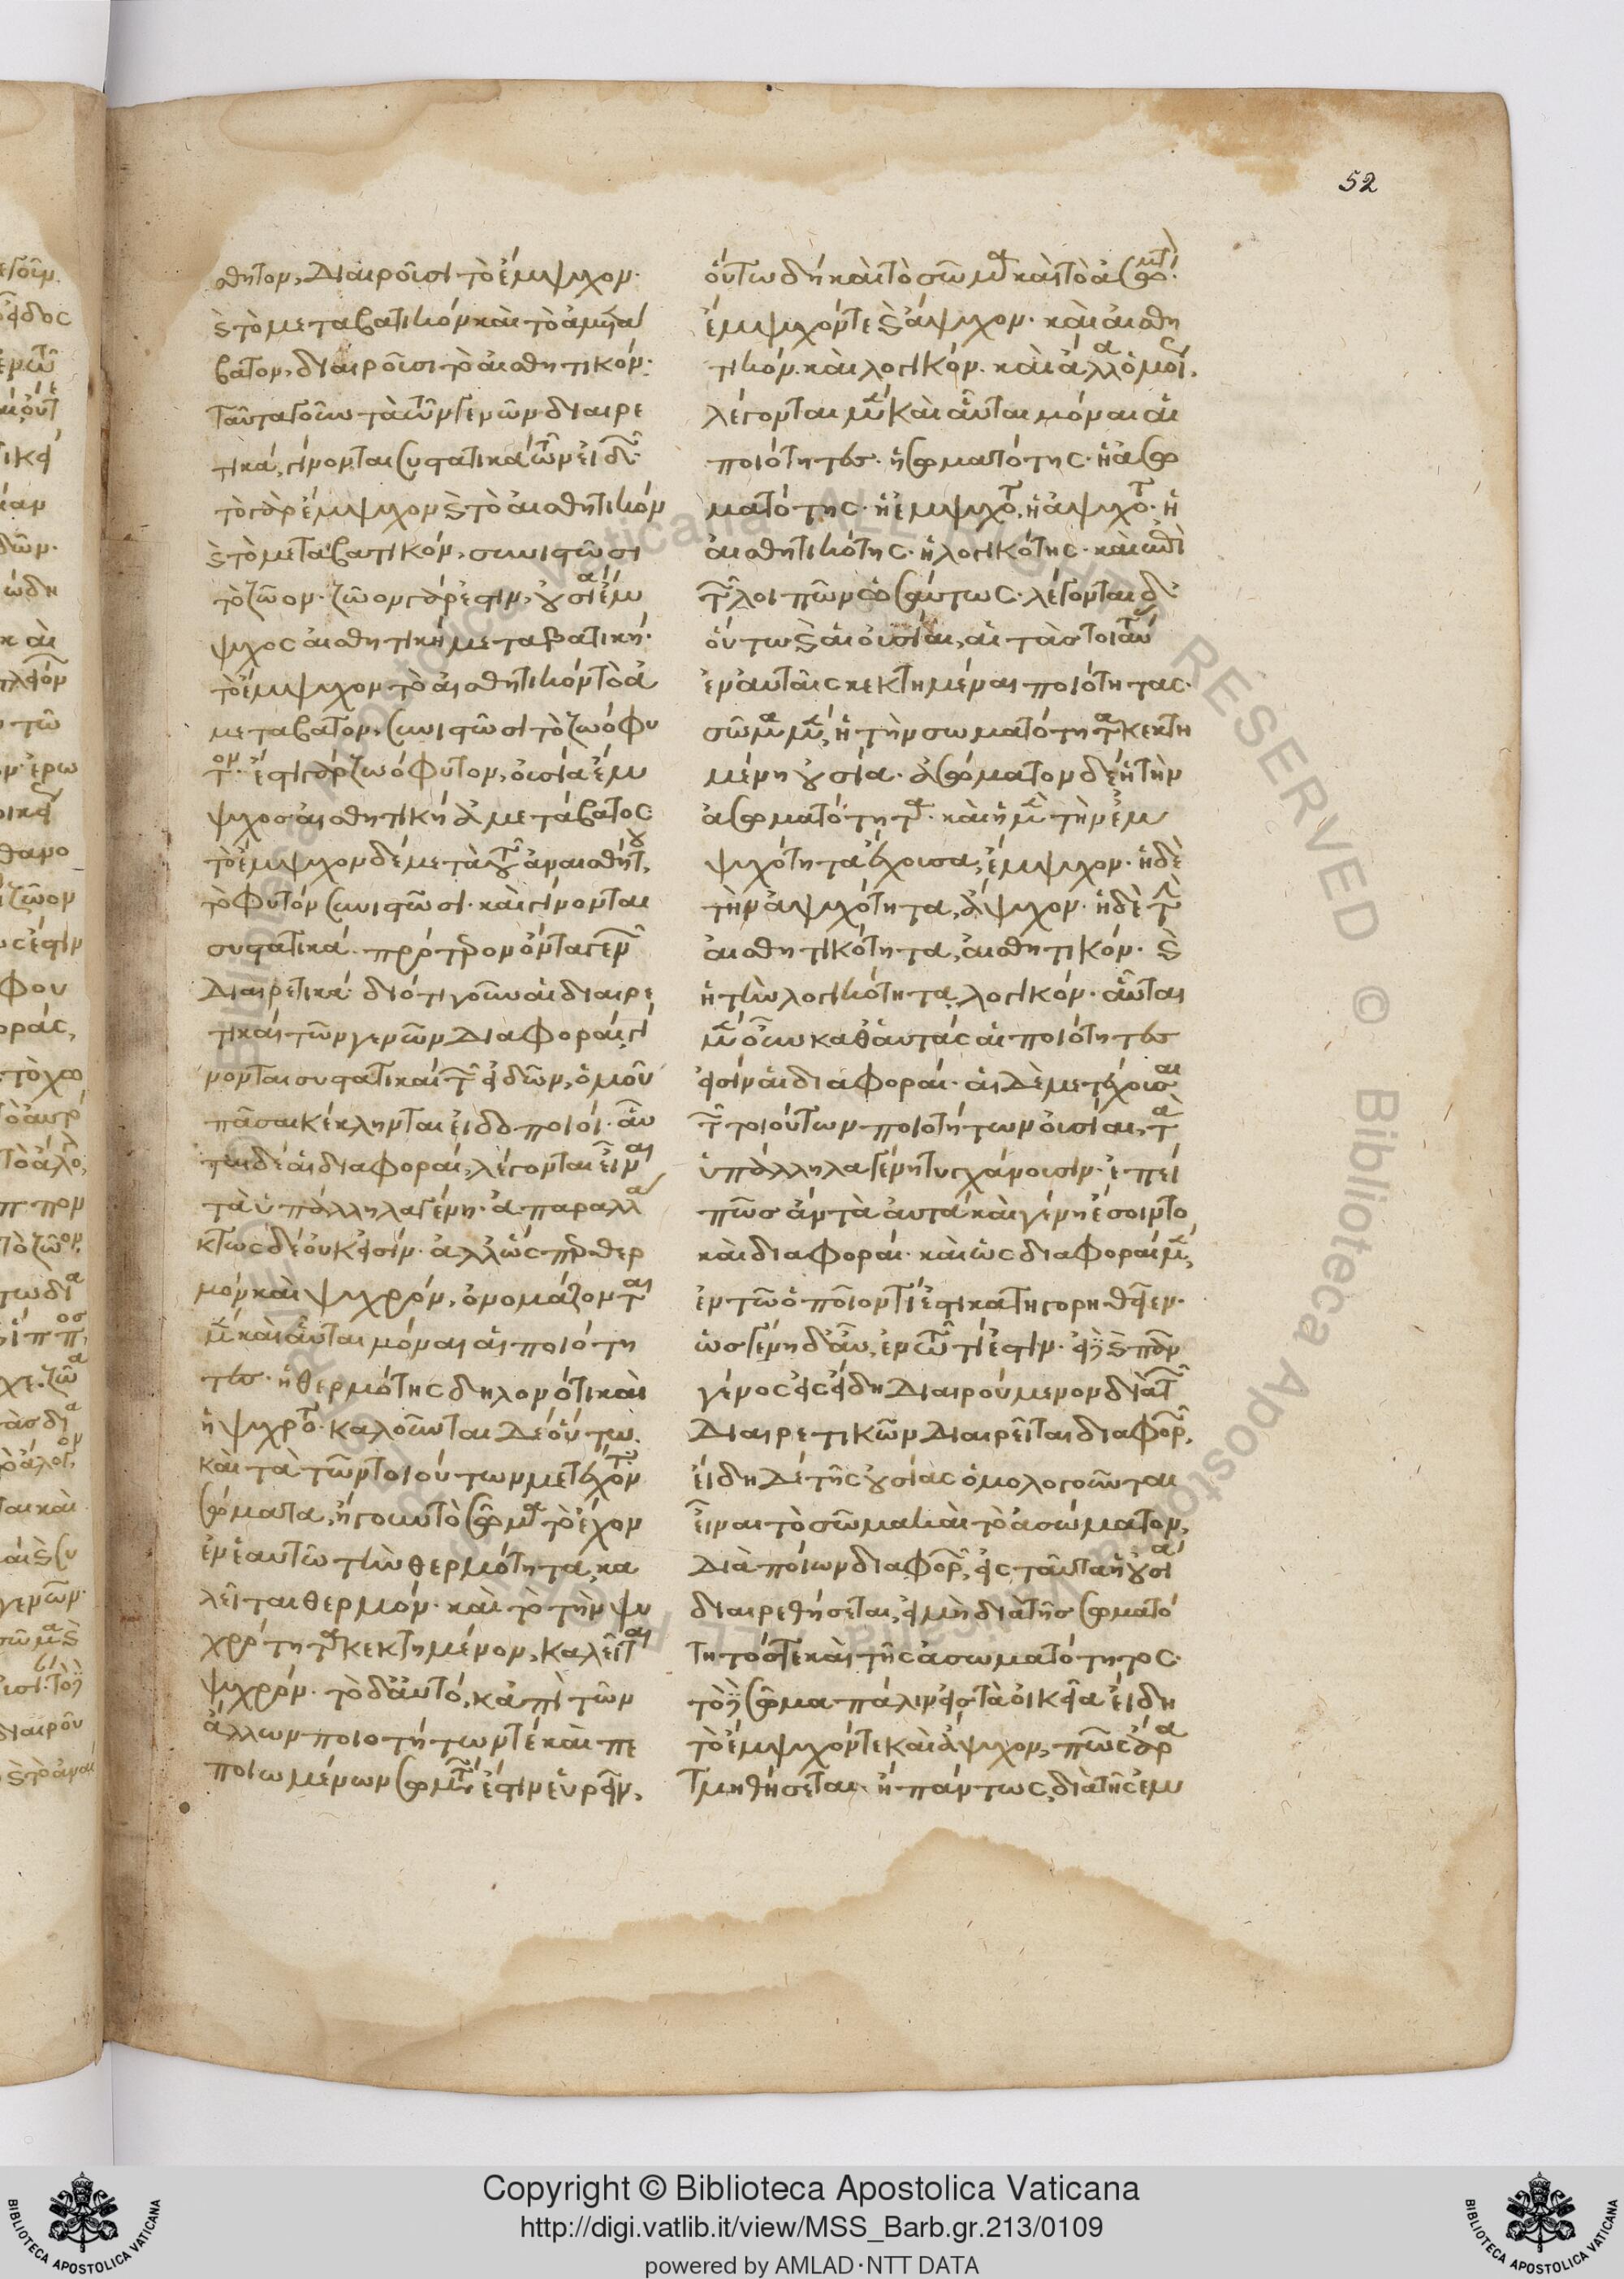 52
θητον, διαιροῦσι τὸ ἔμψυχον·
καὶ τὸ μεταβατικὸν καὶ τὸ ἀμετα
βατον, διαιροῦσι τὸ αἰσθητικόν·
ταῦτα γοῦν τὰ τῶν γενῶν διαιρε
τικὰ, γίνονται συστατικὰ τῶν εἰδῶν·
τὸ γὰρ ἔμψυχον καὶ τὸ αἰσθητικὸν
καὶ τὸ μεταβατικὸν, συνιστῶσι
τὸ ζῶον· ζῶον γάρ ἐστιν, οὐσία ἔμ
ψυχος αἰσθητικὴ μεταβατική·
τὸ ἔμψυχον τὸ αἰσθητικὸν τὸ ἀ
μετάβατον, συνιστῶσι τὸ ζωόφυ
τον· ἔστι γὰρ ζωόφυτον, οὐσία ἔμ
ψυχος αἰσθητικὴ ἀμετάβατος
τὸ ἔμψυχον δὲ μετὰ τοῦ ἀναισθήτου,
τὸ φυτὸν συνιστῶσι· καὶ γίνονται
συστατικὰ πρότερον ὄντα γενῶν
διαιρετικά· διότι γοῦν αἱ διαιρε
τικαὶ τῶν γενῶν διαφοραὶ, γί
νονται συστατικαὶ τῶν εἰδῶν, ὁμοῦ
πᾶσαι κέκληνται εἰδοποιοί· αὗ
ται δὲ αἱ διαφοραὶ, λέγονται εἶναι
τὰ ὑπάλληλα γένη· ἀπαραλλά
κτως δὲ οὐκ εἰσίν· ἀλλ' ὥσπερ θερ
μὸν καὶ ψυχρὸν, ὀνομάζονται
μὲν καὶ αὗται μόναι αἱ ποιότη
τες· ἡ θερμότης δηλονότι καὶ
ἡ ψυχρότης· καλοῦνται δὲ οὕτω
καὶ τὰ τῶν τοιούτων μετέχοντα
σώματα, ἤγουν τὸ σῶμα τὸ ἔχον
ἐν ἑαυτῶ τὴν θερμότητα, κα
λεῖται θερμόν· καὶ τὸ τὴν ψυ
χρότητα κεκτημένον, καλεῖται
ψυχρόν· τὸ δ' αὐτὸ, κἀπὶ τῶν
ἄλλων ποιοτήτων τὲ καὶ πε
ποιωμένων σωμάτων ἐστὶν εὑρεῖν,
οὕτω δὴ καὶ τὸ σῶμα καὶ τὸ ἀσώματον·
ἔμψυχόν τε καὶ ἄψυχον· καὶ αἰσθη
τικόν· καὶ λογικόν· καὶ ἄλλα ὁμοί,
λέγονται μὲν καὶ αὗται μόναι αἱ
ποιότητες· ἡ σωματότης· ἡ ἀσω
ματότης· ἡ ἐμψυχότης, ἡ ἀψυχότης· ἡ
αἰσθητικότης· ἡ λογικότης· καὶ ἐπὶ
τῶν λοιπῶν ὡσαύτως· λέγονται δὲ
οὕτω καὶ αἱ οὐσίαι, αἱ τὰς τοιαύτας
ἐν αὐταῖς κεκτημέναι ποιότητας·
σῶμα μὲν, ἡ τὴν σωματότητα κεκτη
μένη οὐσία· ἀσώματον δὲ ἡ τὴν
ἀσωματότητα· καὶ ἡ μὲν τὴν ἐμ
ψυχότητα ἔχουσα, ἔμψυχον· ἡ δὲ
τὴν ἀψυχότητα, ἄψυχον· ἡ δὲ τὴν
αἰσθητικότητα, αἰσθητικόν· καὶ
ἡ τὴν λογικότητα, λογικόν· αὗται
μὲν οὖν καθ' αὑτὰς αἱ ποιότητες
εἰσὶν αἱ διαφοραί· αἱ δὲ μετέχουσαι
τῶν τοιούτων ποιοτήτων οὐσίαι, τὰ
ὑπάλληλα γένη τυγχάνουσιν· ἐπεὶ
πῶς ἂν τὰ αὐτὰ καὶ γένη ἔσοιντο
καὶ διαφοραί· καὶ ὡς διαφοραὶ μὲν,
ἐν τῶ ὁποῖόν τί ἐστι κατηγορηθεῖεν·
ὡς γένη δ' αὖ, ἐν τῶ τί ἐστιν· εἰ δὲ καὶ πᾶν
γένος εἰς εἴδη διαιρούμενον διὰ τῶν
διαιρετικῶν διαιρεῖται διαφορῶν,
εἴδη δὲ τῆς οὐσίας ὁμολογοῦνται
εἶναι τὸ σῶμα καὶ τὸ ἀσώματον,
διὰ ποίων διαφορῶν, εἰς ταῦτα ἡ οὐσία
διαιρεθήσεται, εἰ μὴ διὰ τῆς σωματό
τητός τε καὶ τῆς ἀσωματότητος·
τὸ δὲ σῶμα πάλιν εἰς τὰ οἰκεῖα εἴδη
τὸ ἔμψυχόν τε καὶ ἄψυχον, πῶς ἄρα
τμηθήσεται· ἢ πάντως, διὰ τῆς ἐμ
Copyright © Biblioteca Apostolica Vaticana
http://digi.vatlib.it/view/MSS_Barb.gr.213/0109
powered by AMLAD·NTT DATA
BIBLIOTECA APOSTOLICA VATICANA
BIBLIOTECA APOSTOLICA VATICANA